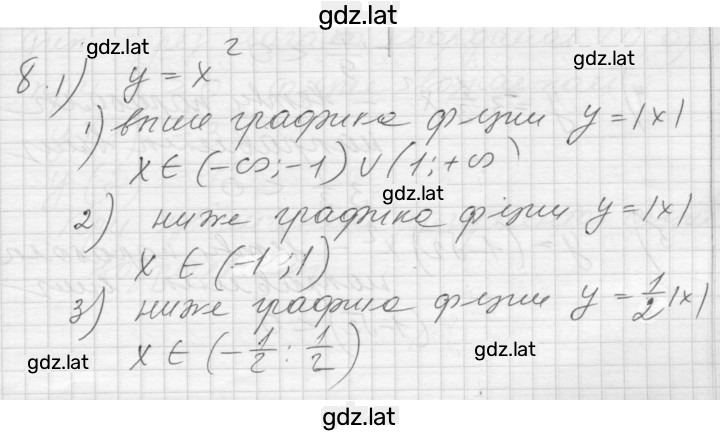 gdz.lat
gdz.lat
gdz.lat
8.1) y = x²
1) выше графика ф-ции y = |x|
x ∈ (-∞; -1) ∪ (1; +∞)
gdz.lat
2) ниже графика ф-ции y = |x|
x ∈ (-1; 1)
3) ниже графика ф-ции y = 1/2 |x|
x ∈ (-1/2 : 1/2)
gdz.lat
gdz.lat
gdz.lat